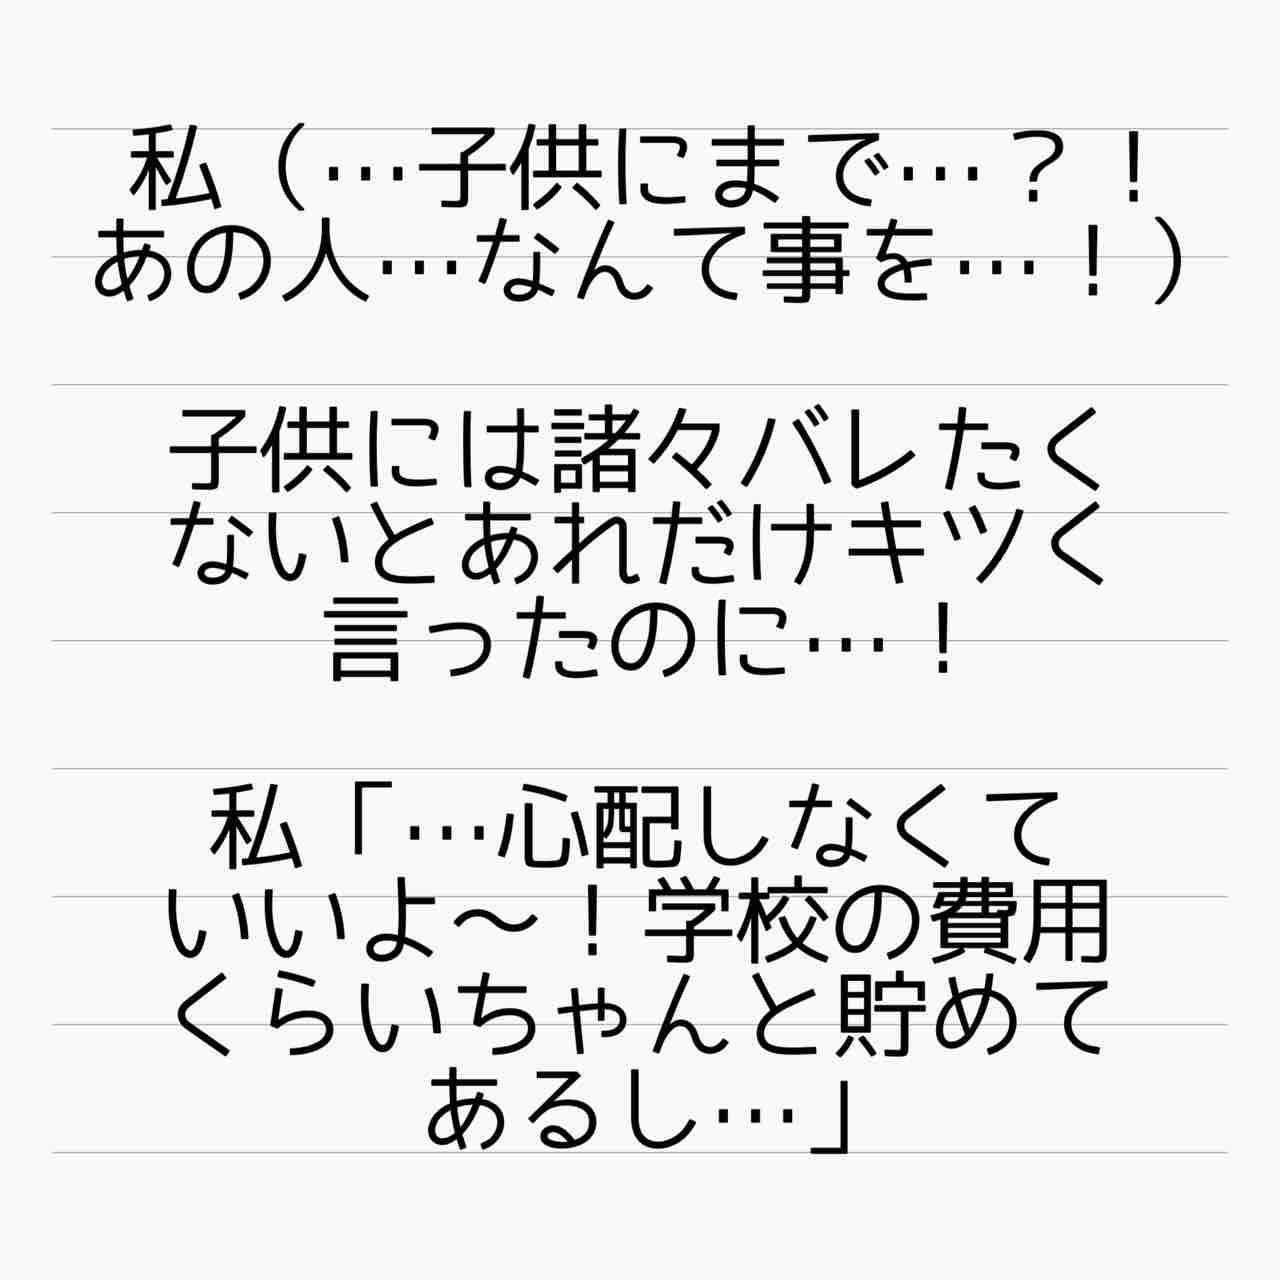 私（…子供にまで…？！
あの人…なんて事を…！）
子供には諸々バレたく
ないとあれだけキツく
言ったのに…！
私「…心配しなくて
いいよ〜！学校の費用
くらいちゃんと貯めて
あるし…」